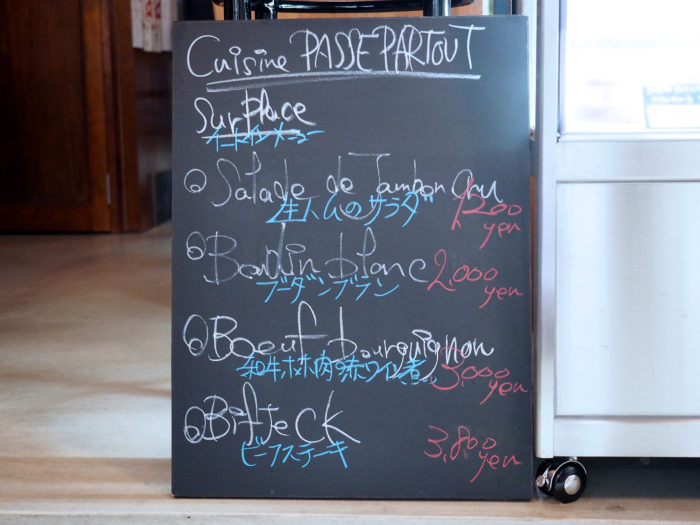 Cuisine PASSEPARTOUT
Surplace
イートインメニュー
Salade de Jambon cru
生ハムのサラダ 1,200 yen
Boudin blanc 2,000 yen
ブーダンブラン
Boeuf bourguignon
和牛ホホ肉の赤ワイン煮 3000 yen
Bifteck
ビーフステーキ 3,800 yen